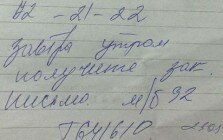 82-21-22
завтра утром
получите зак.
письмо. м/б 92
Т641610